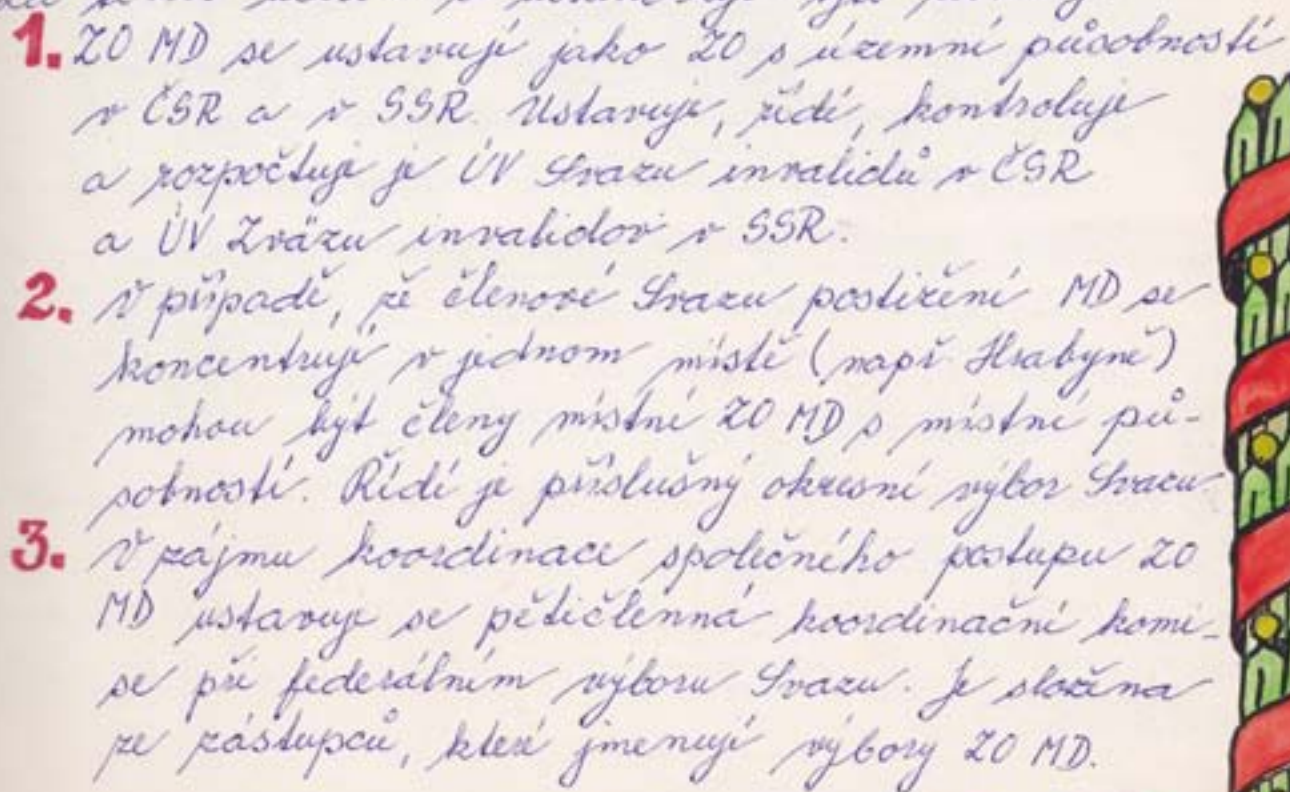 1. ZO MD se ustavují jako ZO s územní působností
v ČSR a v SSR. Ustavuje, řídí, kontroluje
a rozpočtuje je ÚV Svazu invalidů v ČSR
a ÚV Zväzu invalidov v SSR.
2. V případě, že členové Svazu postižení MD se
koncentrují v jednom místě (např Hrabyně)
mohou být členy místní ZO MD s místní pů-
sobností. Řídí je příslušný okresní výbor Svazu
3. V zájmu koordinace společného postupu ZO
MD ustavuje se pětičlenná koordinační komi-
se při federálním výboru Svazu. Je složena
ze zástupců, které jmenují výbory ZO MD.